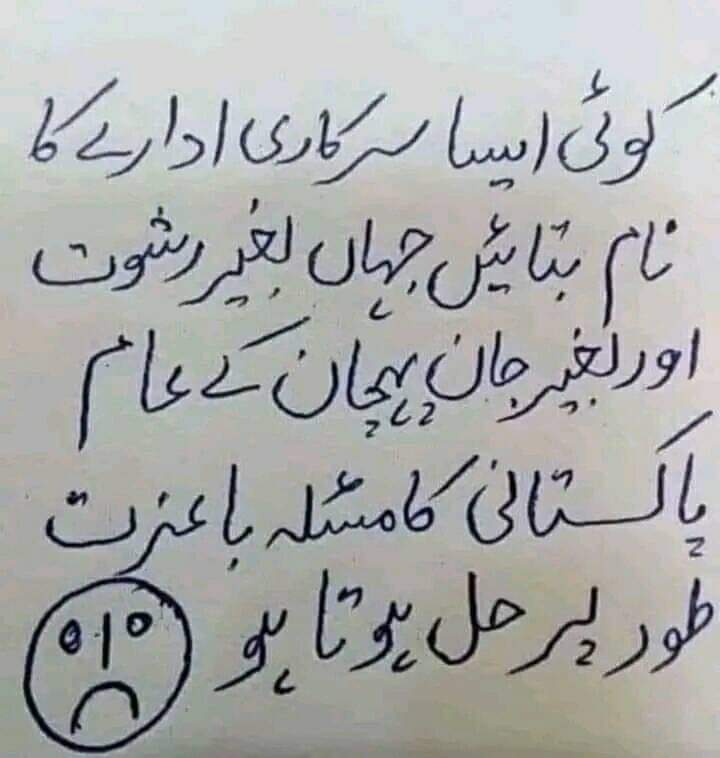 کوئی ایسا سرکاری ادارے کا
نام بتائیں جہاں بغیر رشوت
اور بغیر جان پہچان کے عام
پاکستانی کا مسئلہ باعزت
طور پر حل ہوتا ہو